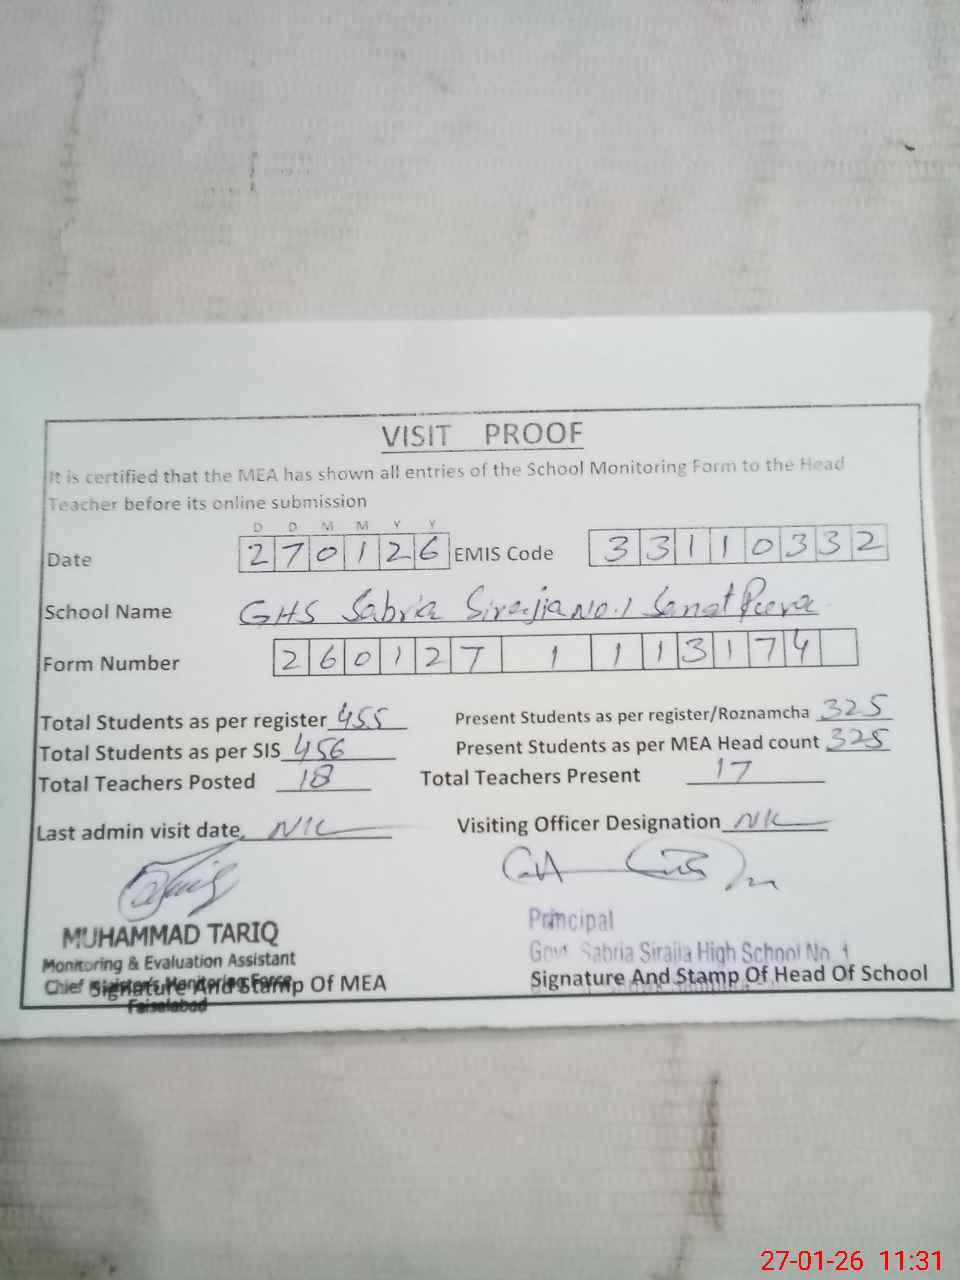 VISIT PROOF
It is certified that the MEA has shown all entries of the School Monitoring Form to the Head
Teacher before its online submission
D D M M Y Y
Date 2 7 0 1 2 6 EMIS Code 3 3 1 1 0 3 3 2
School Name GHS Sabria Sirajia No.1 Sanat Pura
Form Number 2 6 0 1 2 7 1 1 1 3 1 7 4
Total Students as per register 455 Present Students as per register/Roznamcha 325
Total Students as per SIS 456 Present Students as per MEA Head count 325
Total Teachers Posted 18 Total Teachers Present 17
Last admin visit date Nil Visiting Officer Designation Nil
MUHAMMAD TARIQ
Monitoring & Evaluation Assistant
Chief Monitoring Force
Faisalabad
Signature And Stamp Of MEA
Principal
Govt. Sabria Sirajia High School No. 1
Signature And Stamp Of Head Of School
27-01-26 11:31